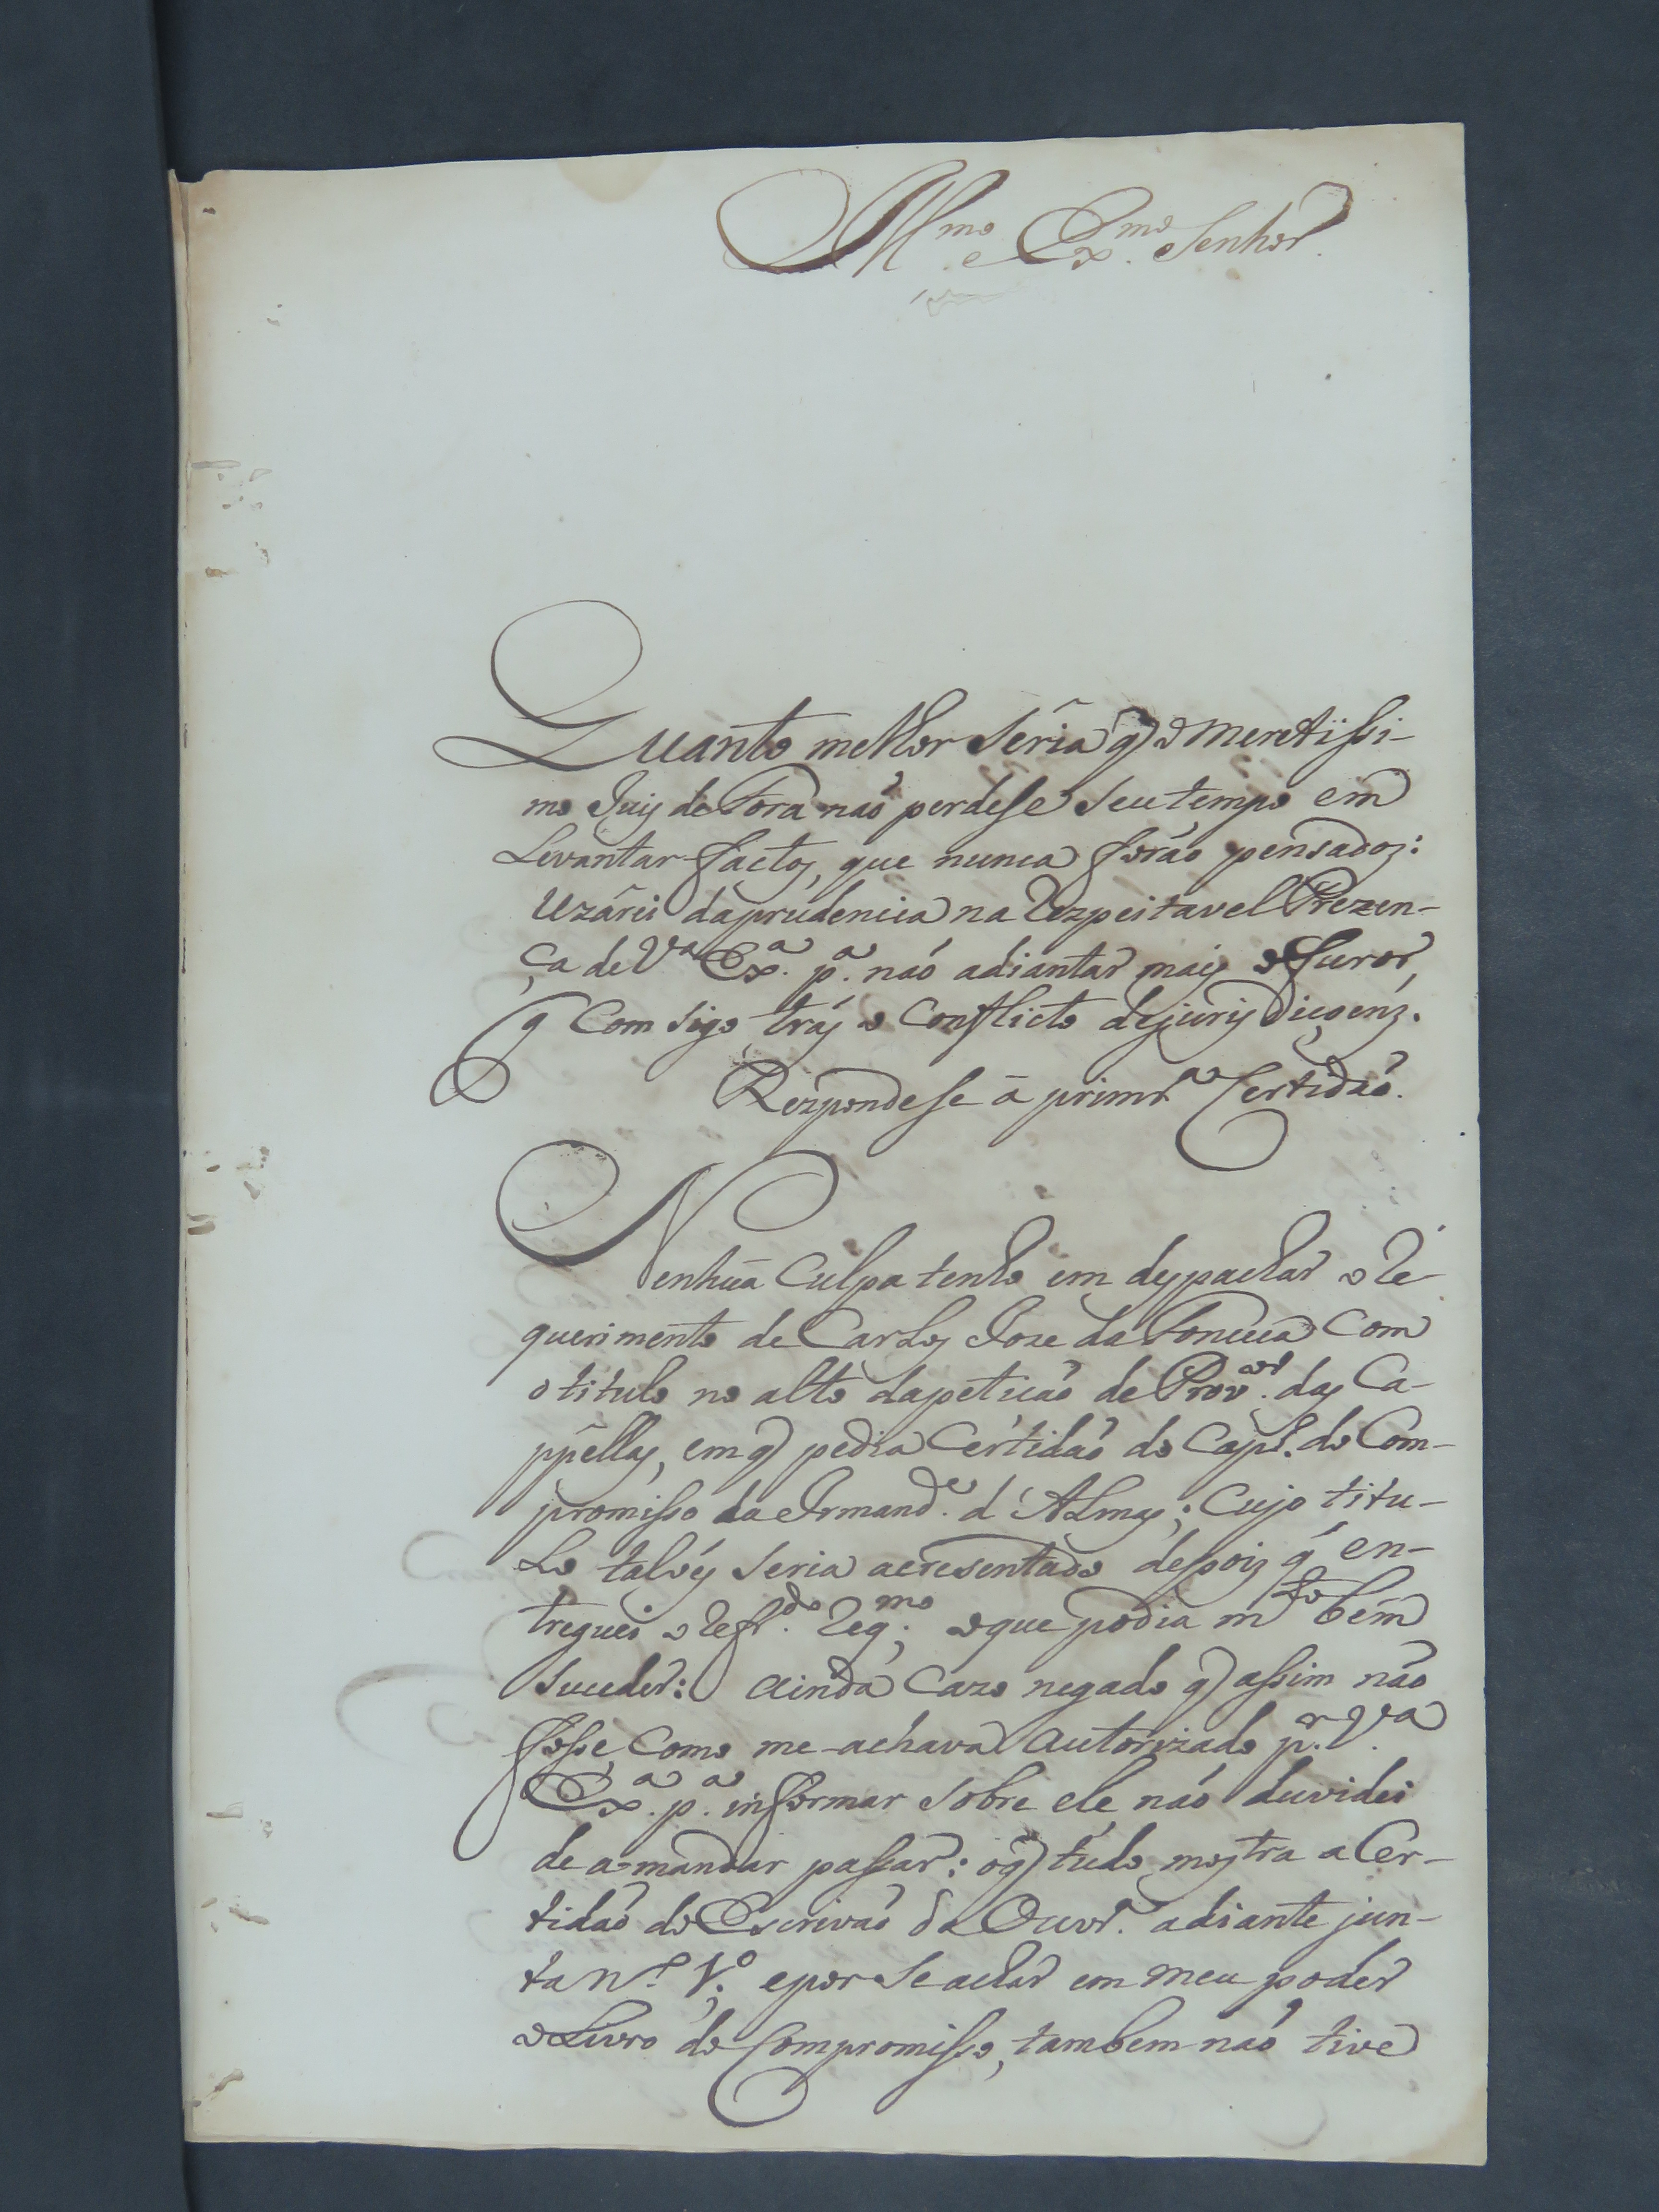 Illmo. e Exmo. Senhor.
Quanto melhor seria q̃ o meretissi-
mo Juis de Fora naõ perdese seu tempo em
Levantar factos, que nunca foraõ pensados:
Uzarei da prudencia na Respeitavel Prezen-
ça de Va. Exa. pa. naõ adiantar mais o furor,
q Comsigo trás o Conflicto de jurisdiçoens.
Respondese á primra. Certidaõ.
Nenhũa Culpa tenho em despachar o Re-
querimento de Carlos Joze da Fonceca Com
o titulo no alto da petiçaõ de Provor. das Ca-
ppellas, em q̃ pedia Certidaõ do Capo. do Com-
promisso da Irmande. d'Almas; Cujo titu-
Lo talvés seria acresentado depois q̃ en-
treguei o Refrdo. Reqmo; o que podia mto bem
suceder: ainda Cazo negado q̃ assim naõ
fosse, Como me achava autorizado pr. Va.
Exa. pa. informar sobre ele naõ duvidei
de a mandar passar: o q̃ tudo mostra a Cer-
tidaõ do Escrivaõ da Ouvr. adiante jun-
ta No. 1o; e por se achar em meu poder
o Livro do Compromisso, tambem naõ tive